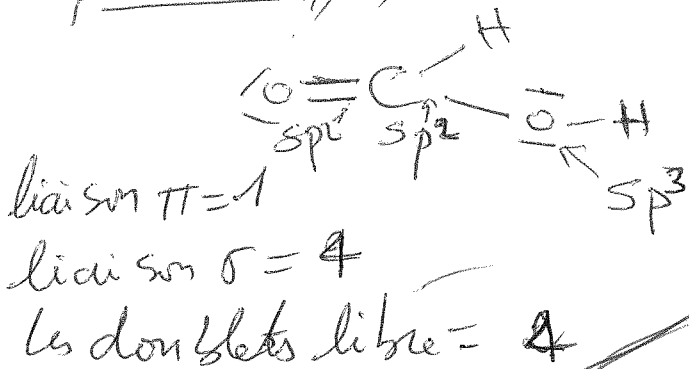 H
O = C
O - H
sp² sp²
sp³
liaison π = 1
liaison σ = 4
les doublets libre = 4